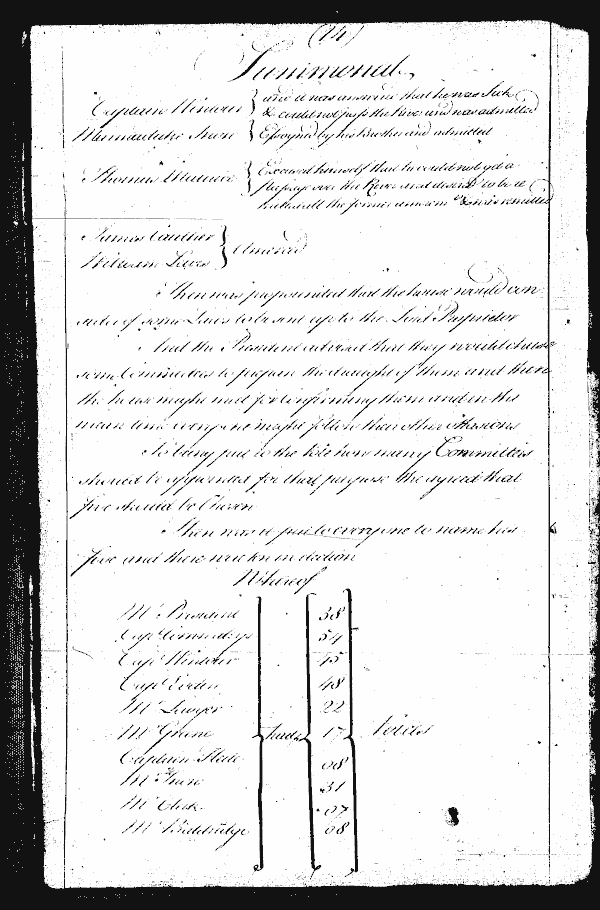 (14)
Summoned
Captain Wintour } and it was answered that he was Sick
& could not pass the River and was admitted
Marmaduke Snow } Essoyned by his Brother and admitted
Thomas Maurice } Excused himself that he could not get a
passage over the River and desired to be
all the former
James Cauther }
William Lewis } Amerced
Then was propounded that the house would con
sider of some Laws to be sent up to the Lord Proprietor
And the President advised that they would chuse
some Committees to prepare the draught of them and then
the house might meet for confirming them and in the
mean time every one might follow their other Occasions
So being put to the Vote how many Committees
should be appointed for that purpose the agreed that
five should be Chosen
Then was it put to every one to name his
five and there were ten in election
Whereof
Mr President 38
Capt Cornwaleys 54
Capt Wintour 45
Capt Evelin 48
Mr Lewger 22
Mr Greene } had { 17 } Voices
Captain Flete 08
Mr Snow 31
Mr Clerk 07
Mr Baldridge 08